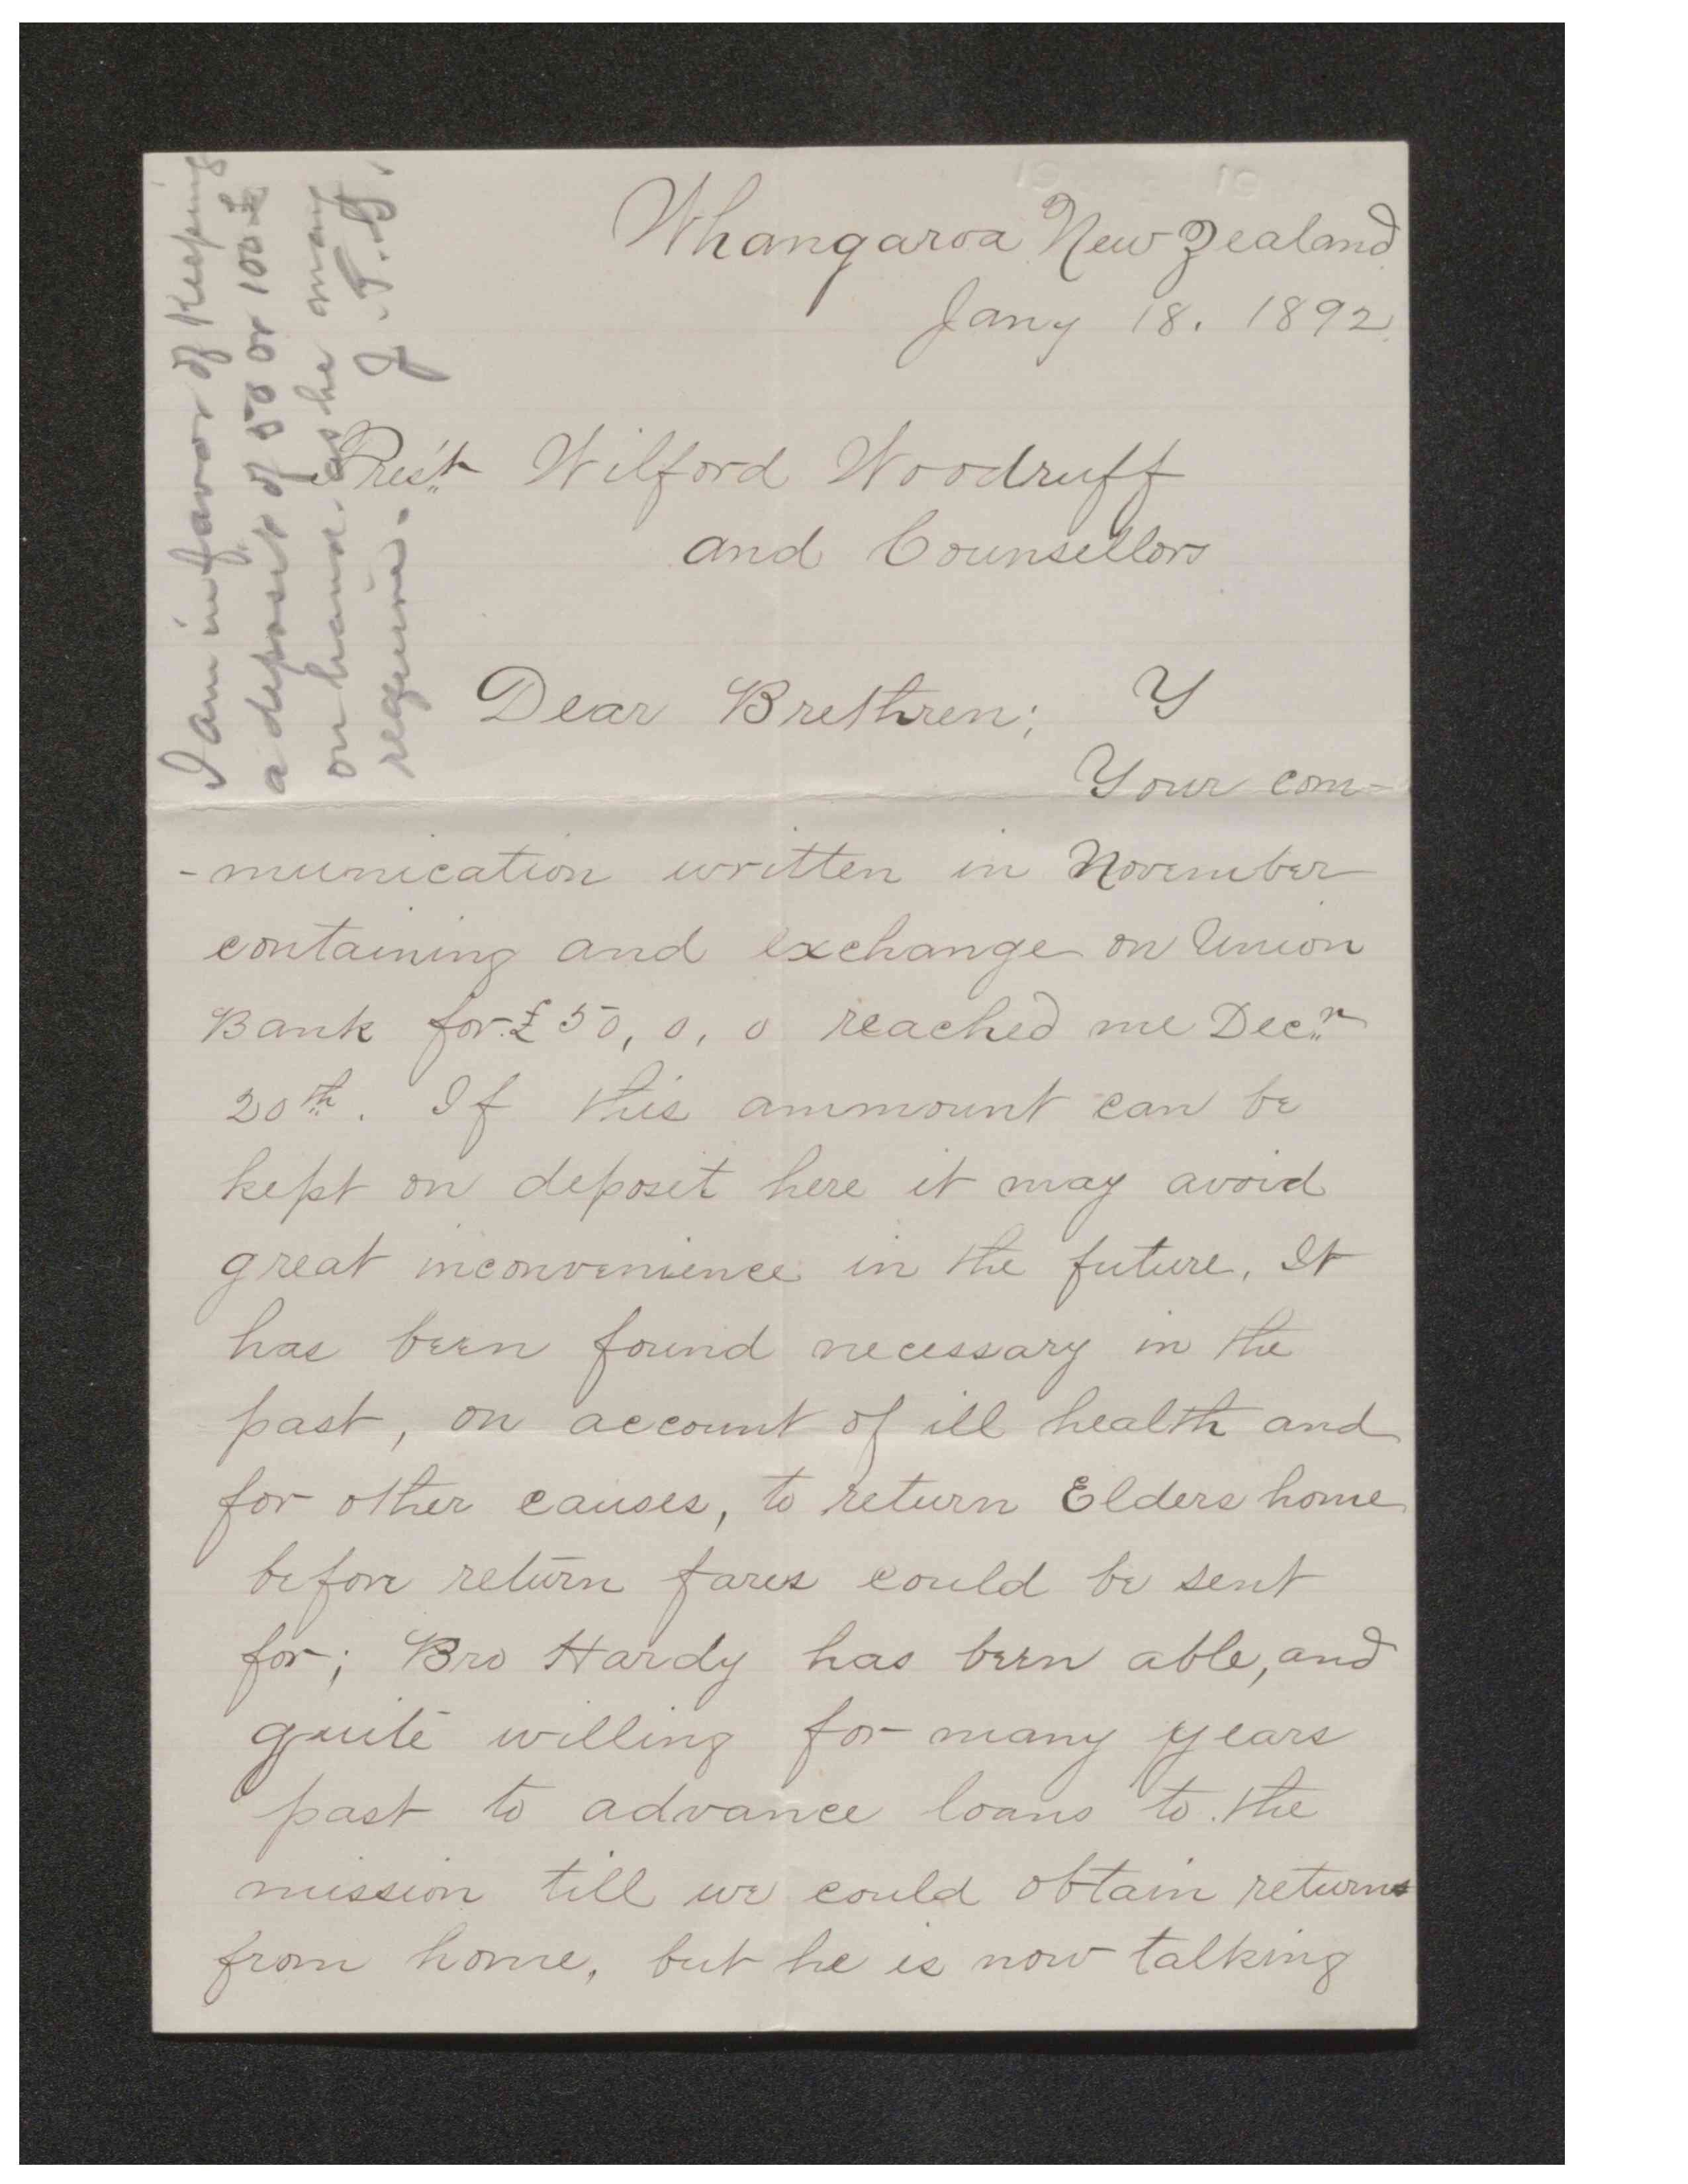 Whangaroa New Zealand
Jany 18. 1892.
Pres't Wilford Woodruff
and Counsellors
Dear Brethren; Y
Your com-
-munication written in November
containing and exchange on Union
Bank for £50, 0, 0 reached me Decr
20th. If this ammount can be
kept on deposit here it may avoid
great inconvenience in the future. It
has been found necessary in the
past, on account of ill health and
for other causes, to return Elders home
before return fares could be sent
for; Bro Hardy has been able, and
quite willing for many years
past to advance loans to the
mission till we could obtain returns
from home, but he is now talking
I am in favor of Keeping
a deposit of 50 or 100 £
on hand. as he may
require. J. F. S.